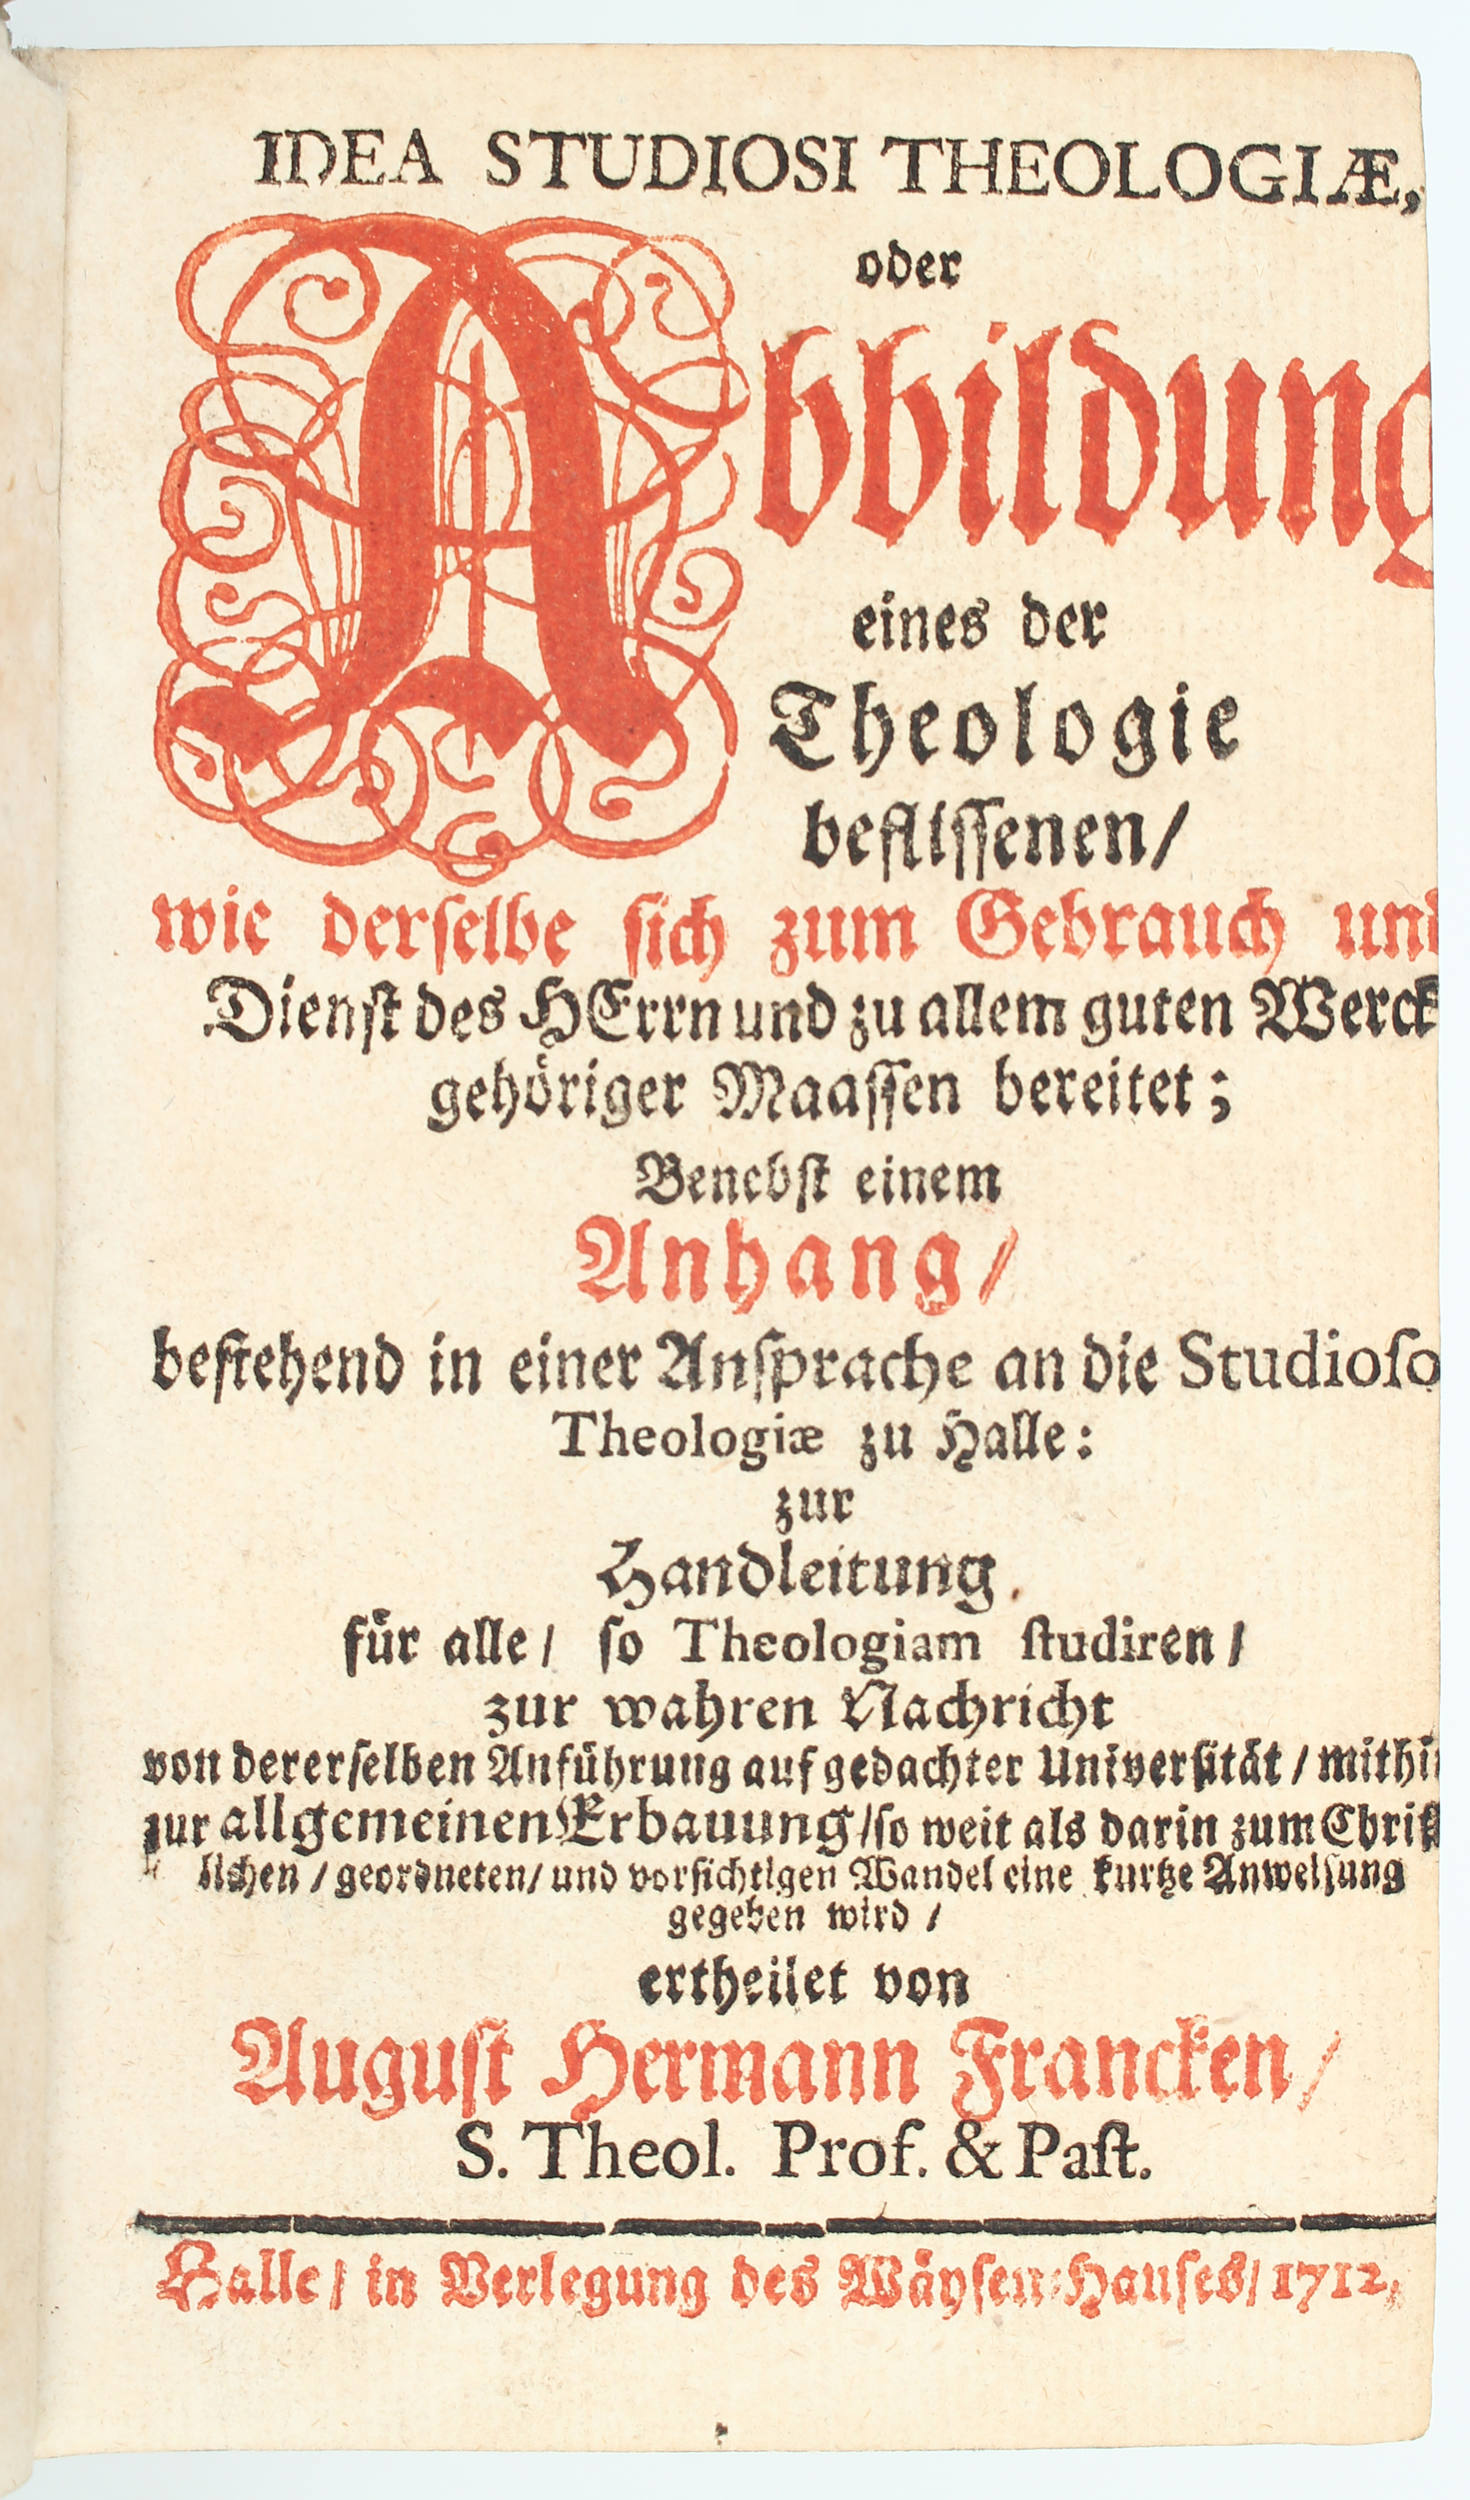 IDEA STUDIOSI THEOLOGIÆ,
oder
Abbildung
eines der
Theologie
beflissenen/
wie derselbe sich zum Gebrauch und
Dienst des HErrn und zu allem guten Werck
gehöriger Maassen bereitet;
Benebst einem
Anhang/
bestehend in einer Ansprache an die Studioso
Theologiæ zu Halle:
zur
Handleitung
für alle/ so Theologiam studiren/
zur wahren Nachricht
von dererselben Anführung auf gedachter Universität/ mithi
zur allgemeinen Erbauung/ so weit als darin zum Christ
lichen/ geordneten/ und vorsichtigen Wandel eine kurtze Anweisung
gegeben wird/
ertheilet von
August Hermann Francken/
S. Theol. Prof. & Past.
Halle/ in Verlegung des Wäysen-Hauses/ 1712,